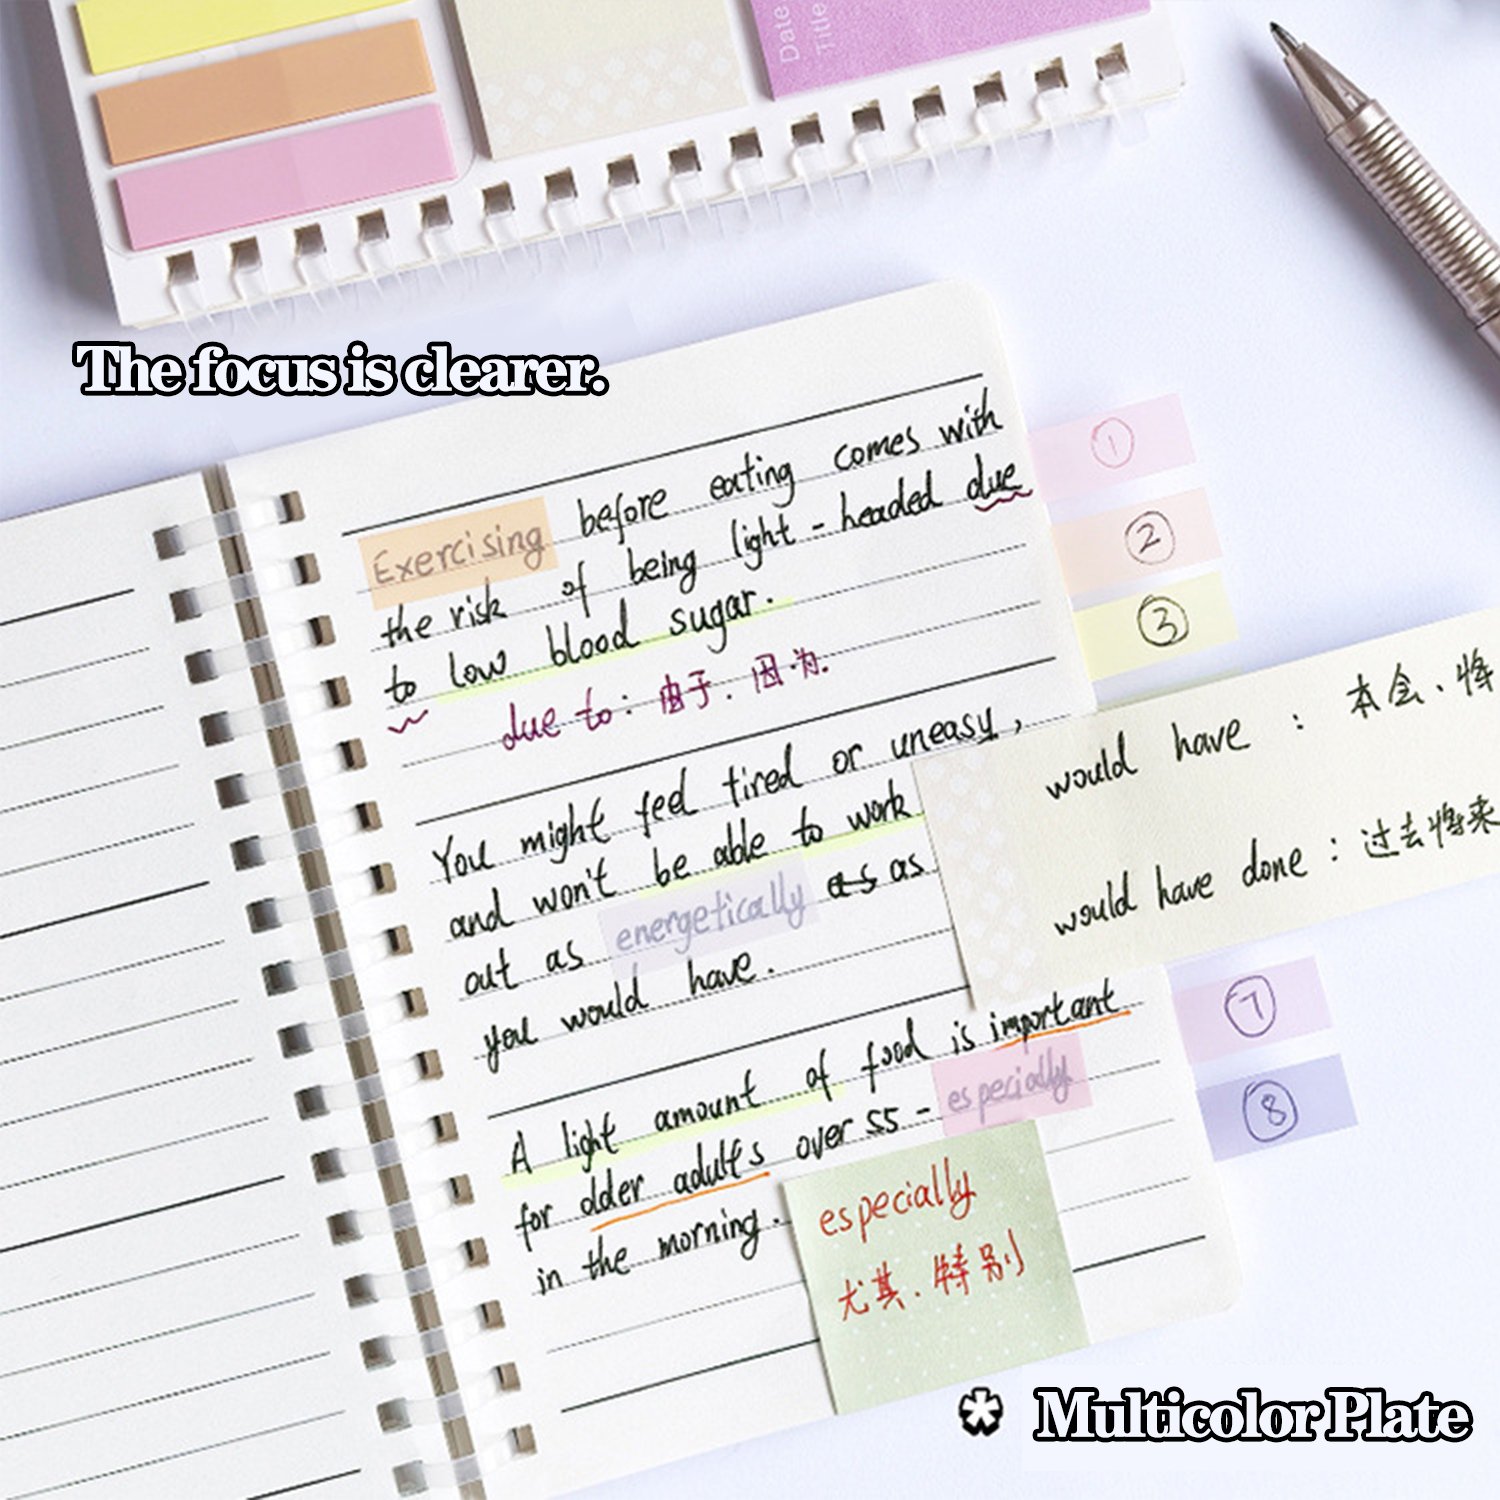 Date
Title
The focus is clearer.
Exercising before eating comes with
the risk of being light-headed due
to low blood sugar.
due to: 由于、因为.
You might feel tired or uneasy,
and won't be able to work
out as energetically as as
you would have.
A light amount of food is important
for older adults over 55 - especially
in the morning.
①
②
③
would have : 本会、将
would have done : 过去将来
⑦
⑧
especially
尤其、特别
* Multicolor Plate